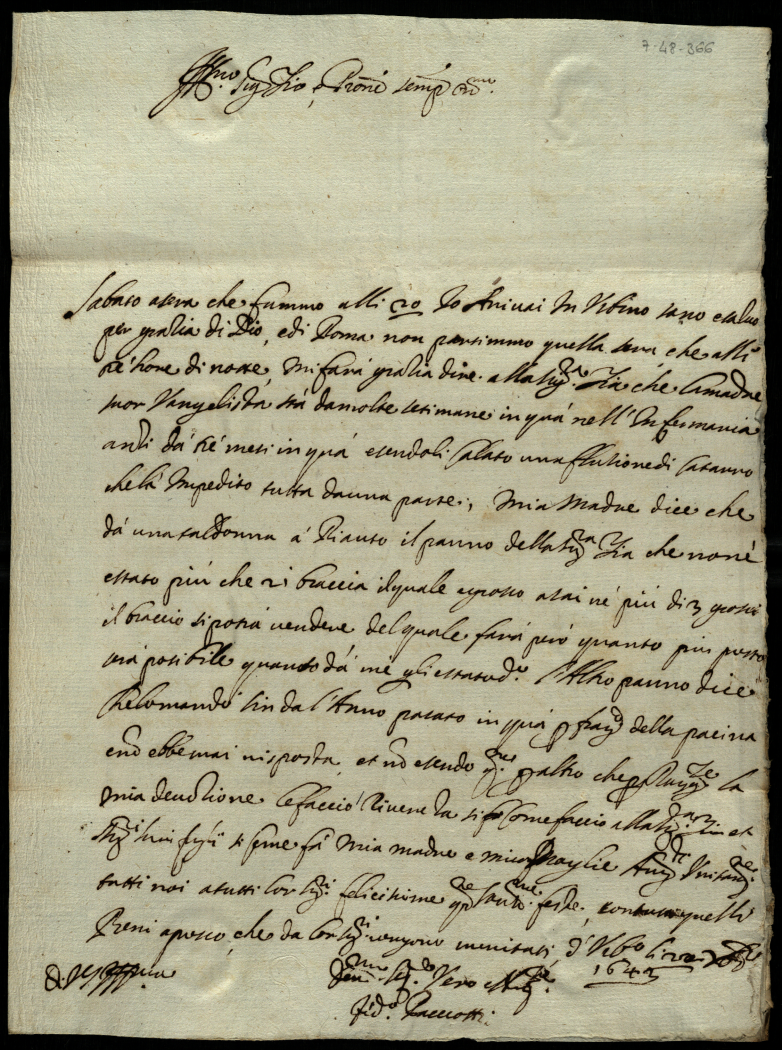 7-48-366
Sig Zio e Prone semp
Sabato asera che fummo alli 20 Io Arivai In Urbino sano e salvo
per gratia di Dio, e di Roma non partimmo quella sera che alli
tré hore di notte, Mi fará gratia dire alla Sigra Zia che la madre
suor Vangelista stá da molte setimane in quá nell'Infermaria
anzi dá tré mesi in quá esendoli calato una flutione di cataro
che lá Impedito tutta da una parte, Mia Madre dice che
dá una tal donna á Riauto il panno della Sigra Zia che non é
estato piú che 21 braccia il quale e grosso asai né piú di 3 grossi
il braccio si potrá vendere del quale fará peró quanto piu presto
sará posibile quanto dá mé gli estato do. L'Altro panno dice
che lo mandó sin da l'Anno pasato in quá p fra della
e nō ebbe mai risposta, et nō esendo qsta p altro che p la
mia devotione le facció Riverenza si come faccio alla Sigra Zia et
Sigri suoi figli si come fá mia madre e mia Moglie
tutti noi a tutti lor Sigri felicissime qste feste, con quelli
Beni apresso, che da lor Sigri vengono meritati, d'Urbo li 22
D. V. S. Illma
1643
Devmo Sre Vero
Fido Pacciotti